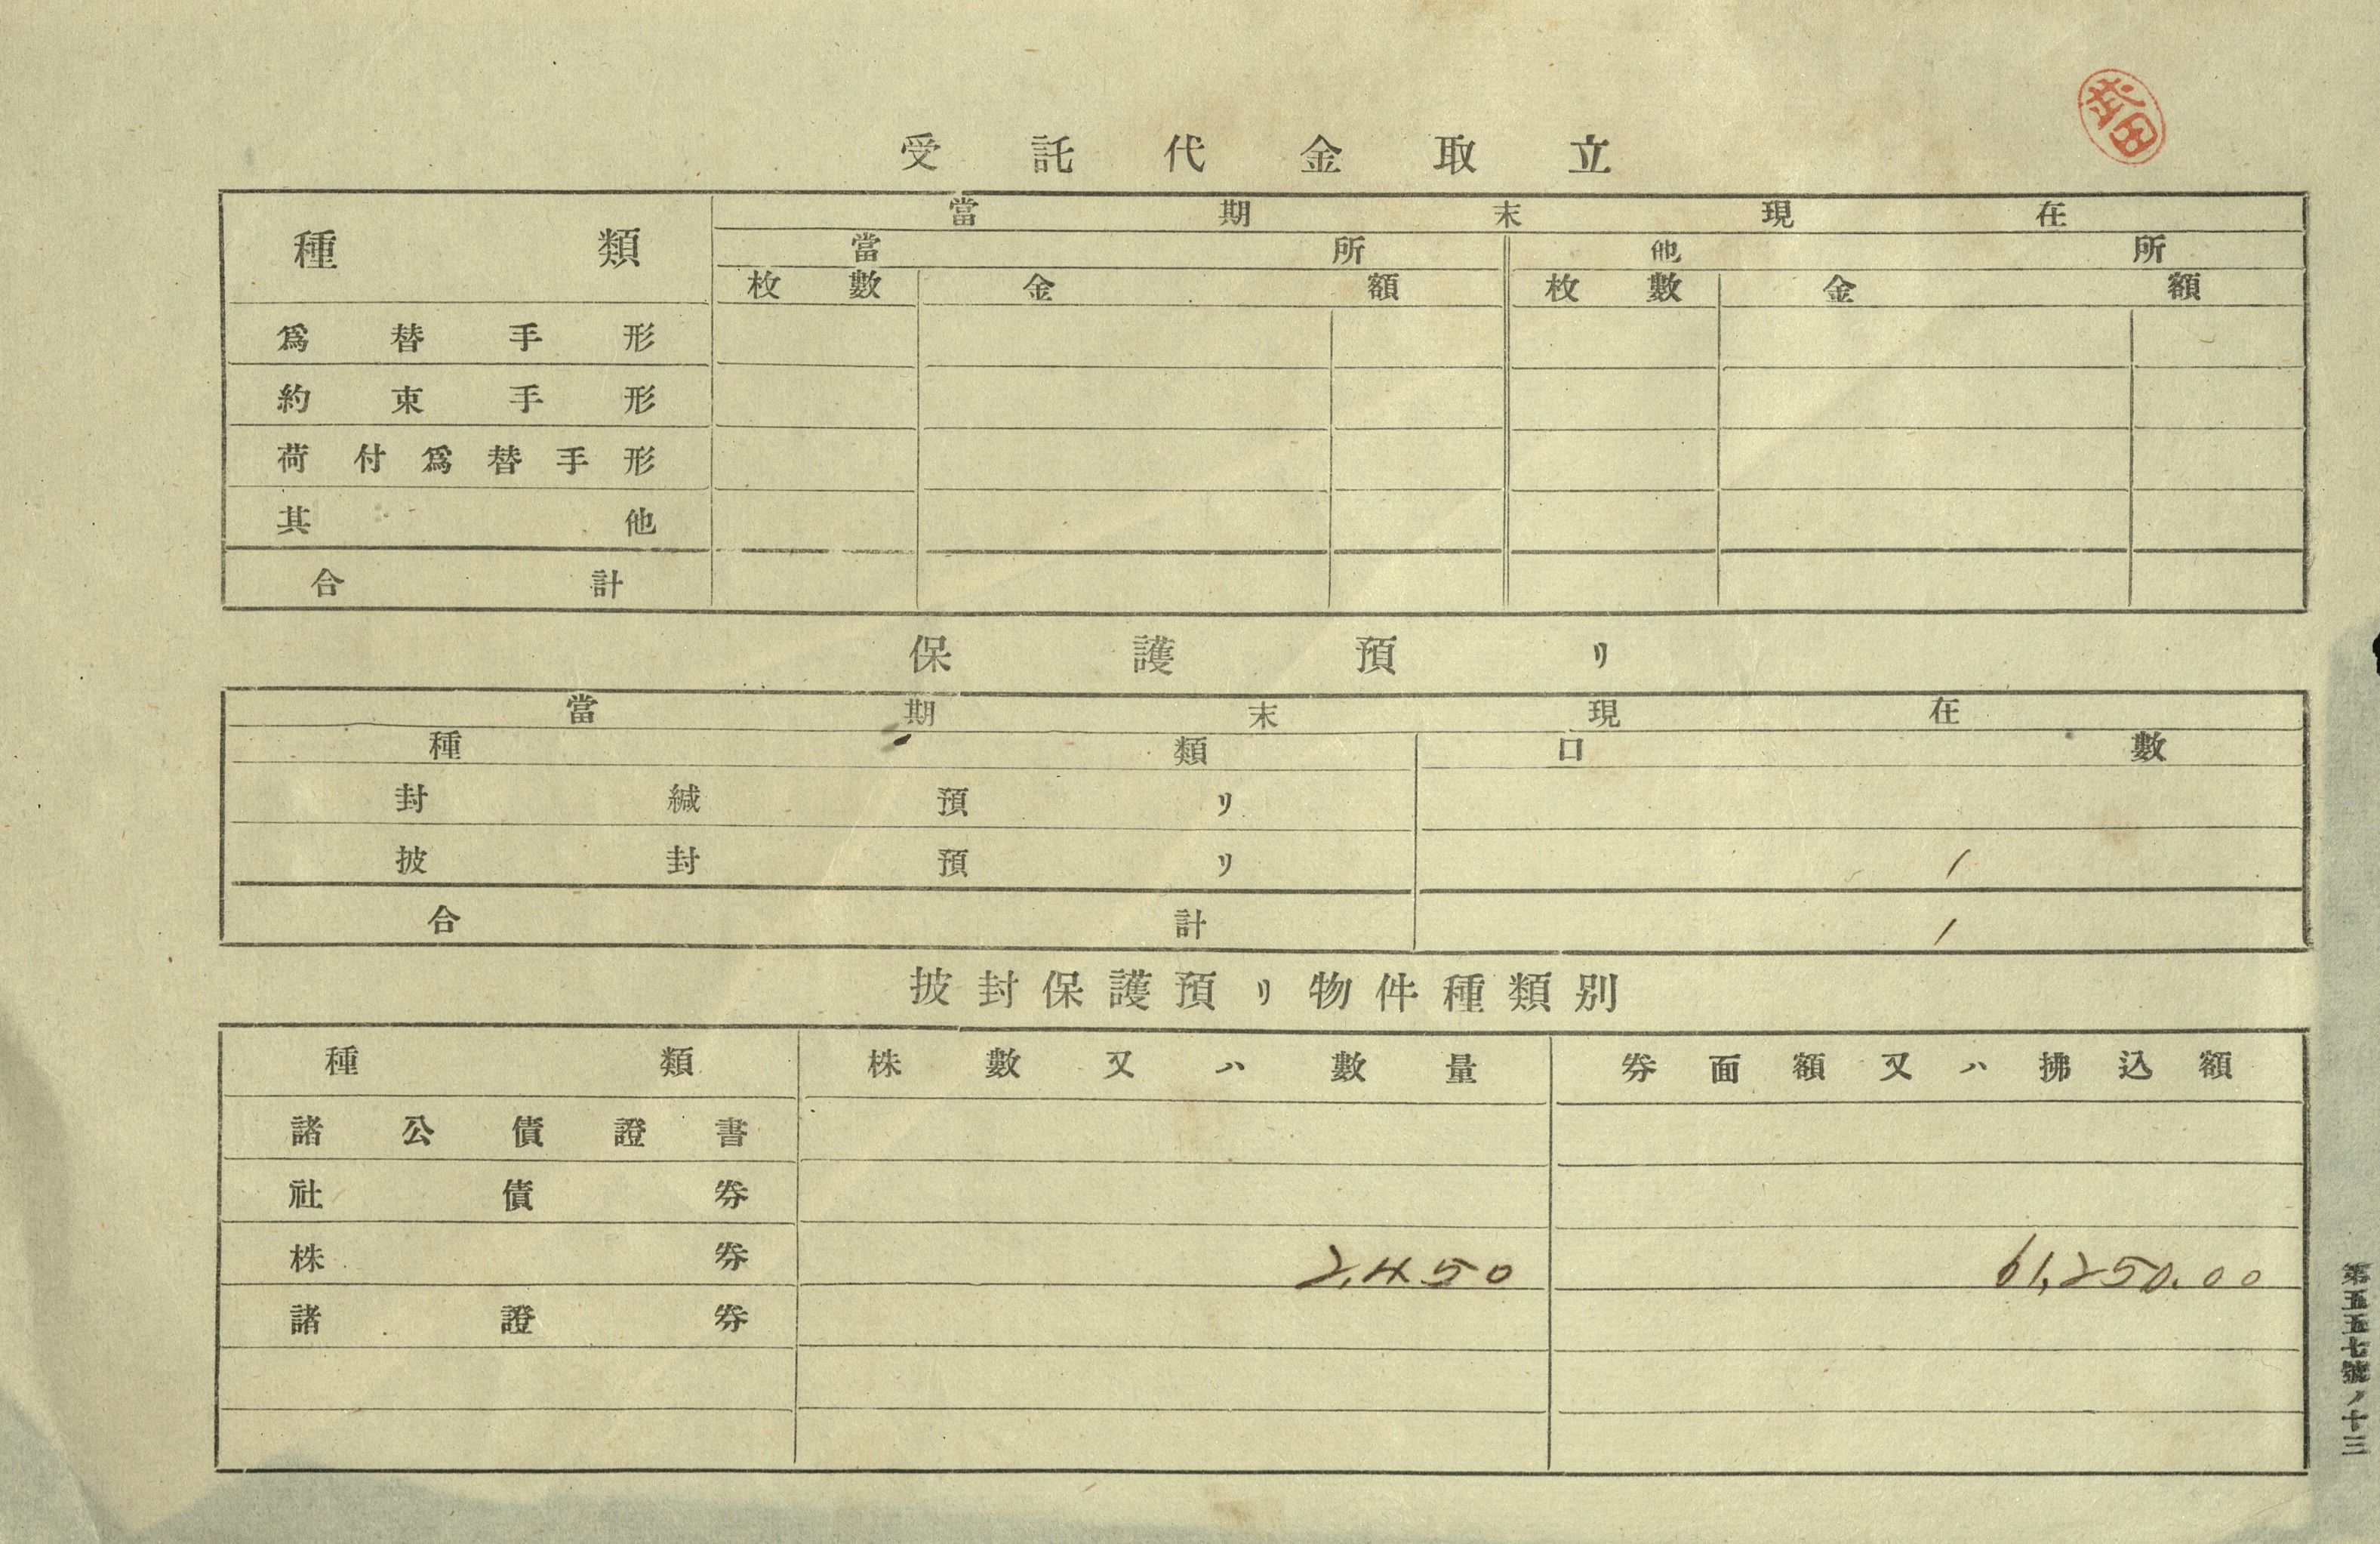 武田
受託代金取立
種類 當期末現在
當所 他所
枚數 金額 枚數 金額
爲替手形
約束手形
荷付爲替手形
其他
合計
保護預リ
當期末現在
種類 口數
封緘預リ
披封預リ 1
合計 1
披封保護預リ物件種類別
種類 株數又ハ數量 券面額又ハ拂込額
諸公債證書
社債券
株券 2,450 61,250.00
諸證券
第五五七號ノ十三